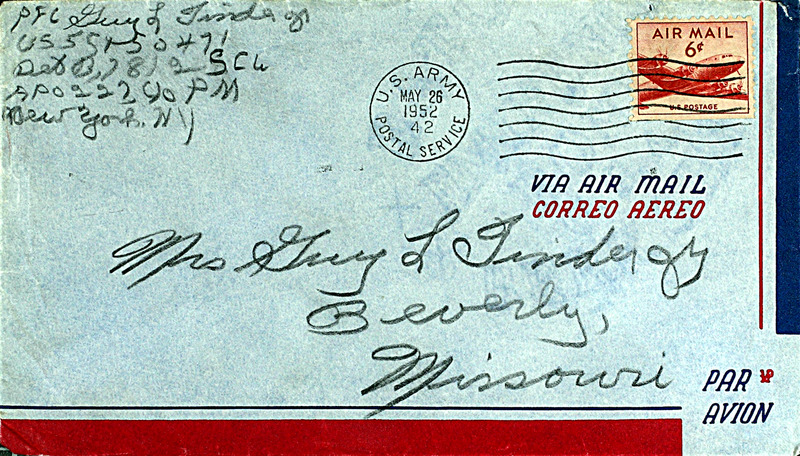 PFC Guy L Tinder Jr
US55150471
Det B, 7812 SCU
APO 227 % PM
New York, NY
U.S. ARMY
MAY 26
1952
42
POSTAL SERVICE
AIR MAIL
6¢
U.S. POSTAGE
VIA AIR MAIL
CORREO AEREO
Mrs Guy L Tinder Jr
Beverly,
Missouri
PAR
AVION